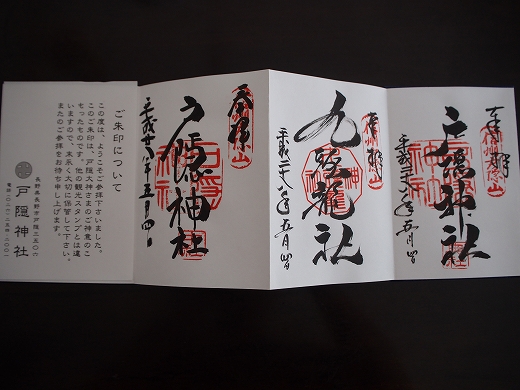 奉拝
信州戸隠山
戸隠神社
平成二十八年五月四日
奉拝
九頭龍社
平成二十八年五月四日
奉拝
戸隠神社
平成廿八年五月四日
ご朱印について
この度は、ようこそご参拝下さいました。
このご朱印は、戸隠大神さまのご神意のこ
もったものです。他の観光スタンプとは違
いますので、末永く大切に保管して下さい。
またのご参拝をお待ち申し上げます。
長野県長野市戸隠三五〇六
戸隠神社
電話 〇二六-二五四-二〇〇一